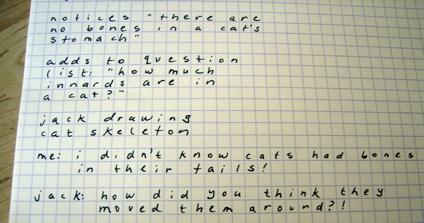 notices "there are
no bones in a cat's
stomach"
adds to question
list: "how much
innards are in
a cat?"
jack drawing
cat skeleton
me: i didn't know cats had bones
in their tails!
jack: how did you think they
moved them around?!